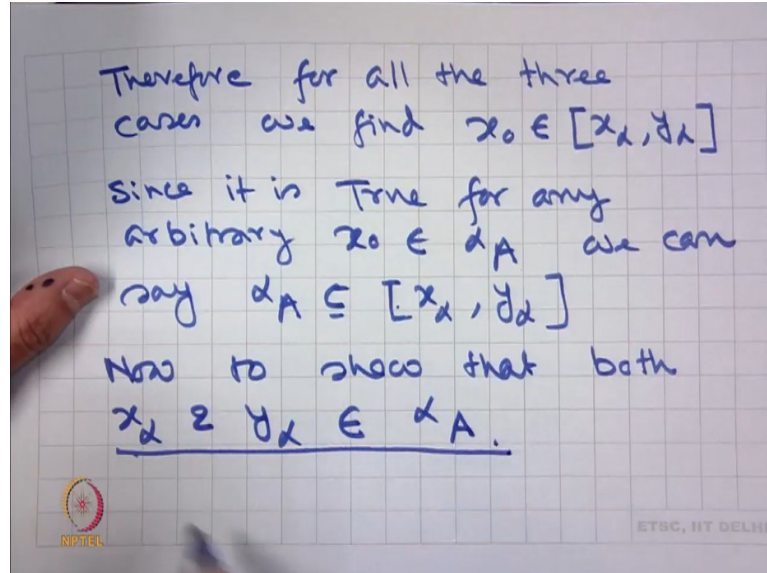 Therefore for all the three
cases we find x₀ ∈ [x_α, y_α]
Since it is True for any
arbitrary x₀ ∈ ᵅA we can
say ᵅA ⊆ [x_α, y_α]
Now to show that both
x_α & y_α ∈ ᵅA.
NPTEL
ETSC, IIT DELHI